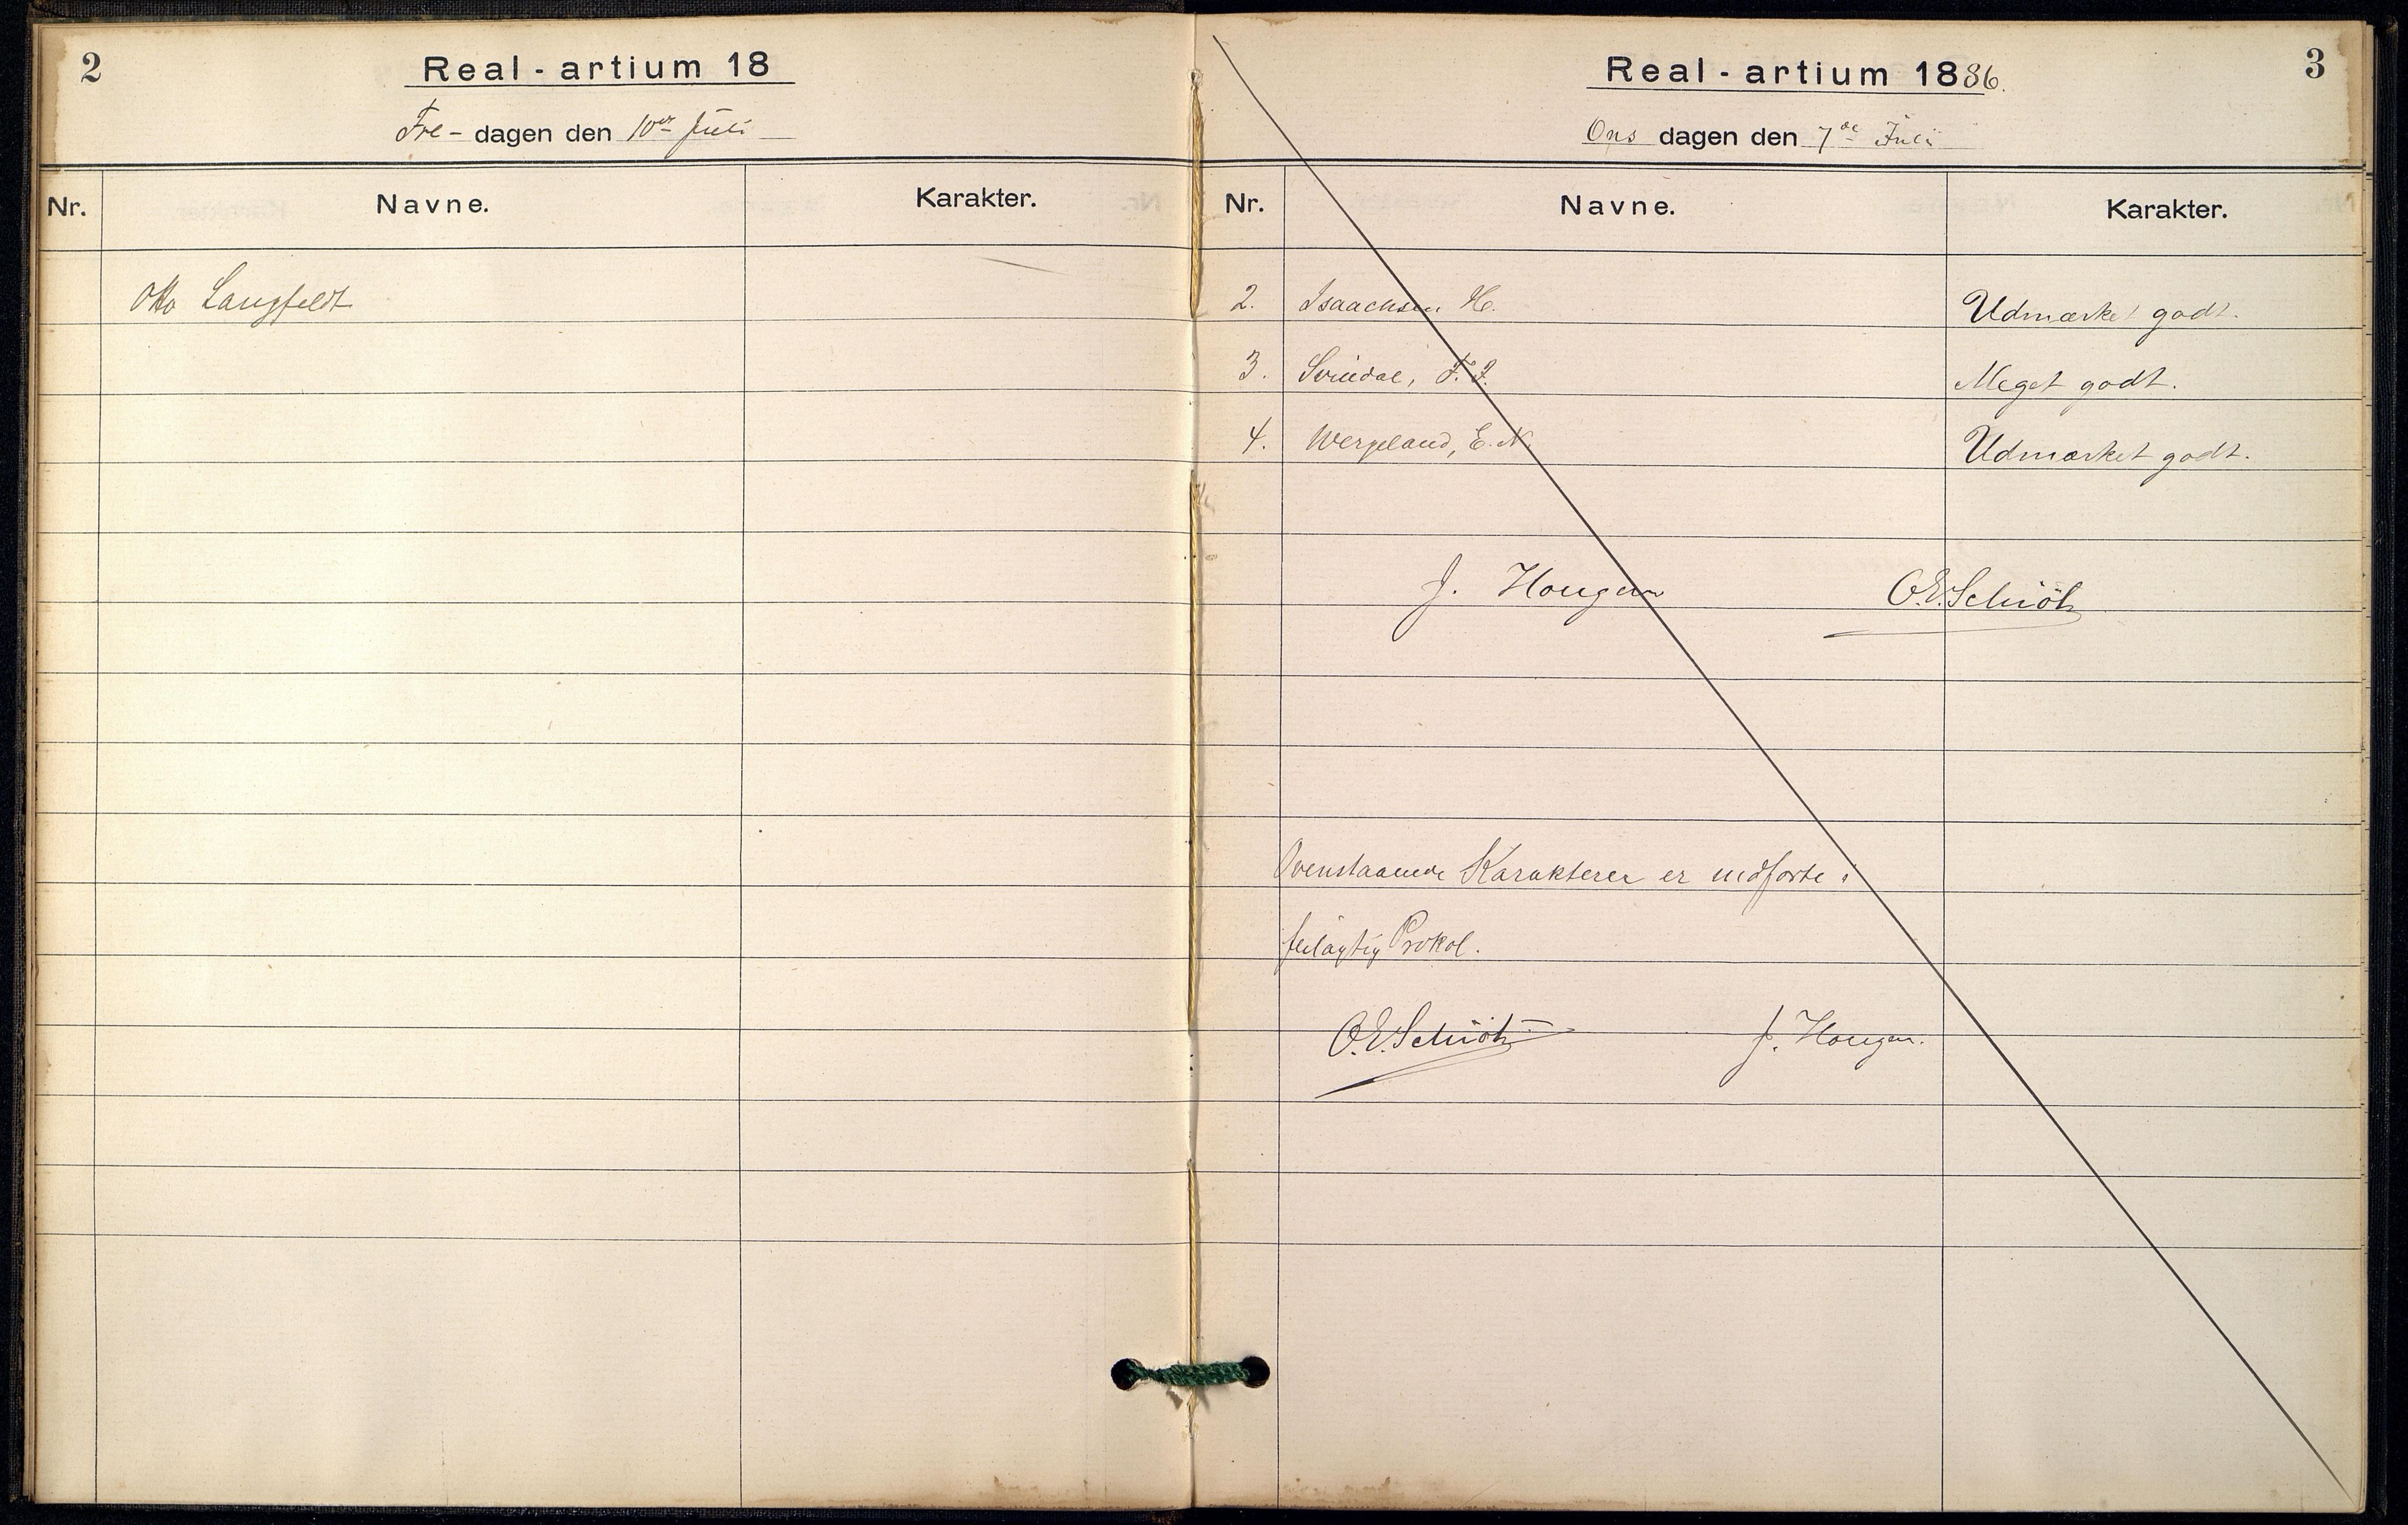 2
Real - artium 18
Fre- dagen den 10de Juli
Nr. Navne. Karakter.
Otto Langfeldt
3
Real - artium 1886.
Ons dagen den 7de Juli
Nr. Navne. Karakter.
2. Isaachsen H. Udmærket godt.
3. Svindal, F. J. Meget godt.
4. Wergeland, E. N. Udmærket godt.
J. Hougen O.E.Schiötz
Ovenstaaende Karakterer er indførte i
feilagtig Protkol.
O.E.Schiötz J. Hougen.